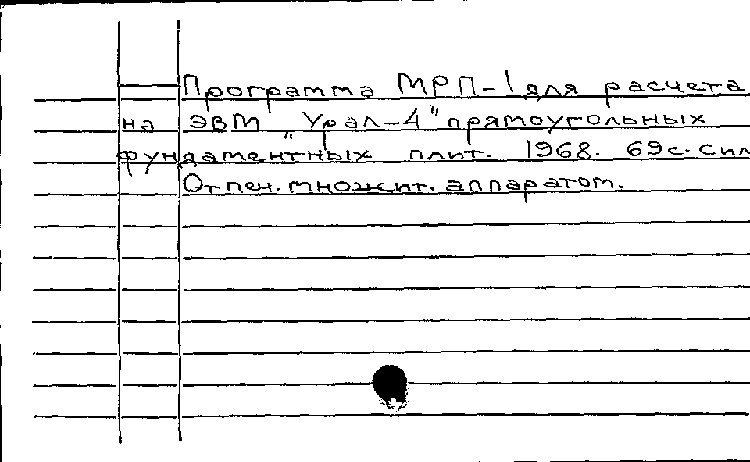 Программа МРП-1 для расчета
на ЭВМ "Урал-4" прямоугольных
фундаментных плит. 1968. 69с. сил
Отпеч. множит. аппаратом.